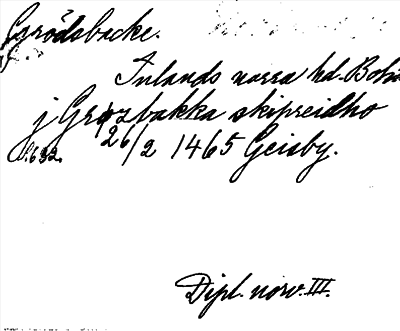 Grödsbacke.
Inlands norra hd. Bohu
j Grozbakka skipreidho
S. 632. 26/2 1465 Geisby.
Dipl. norv. III.